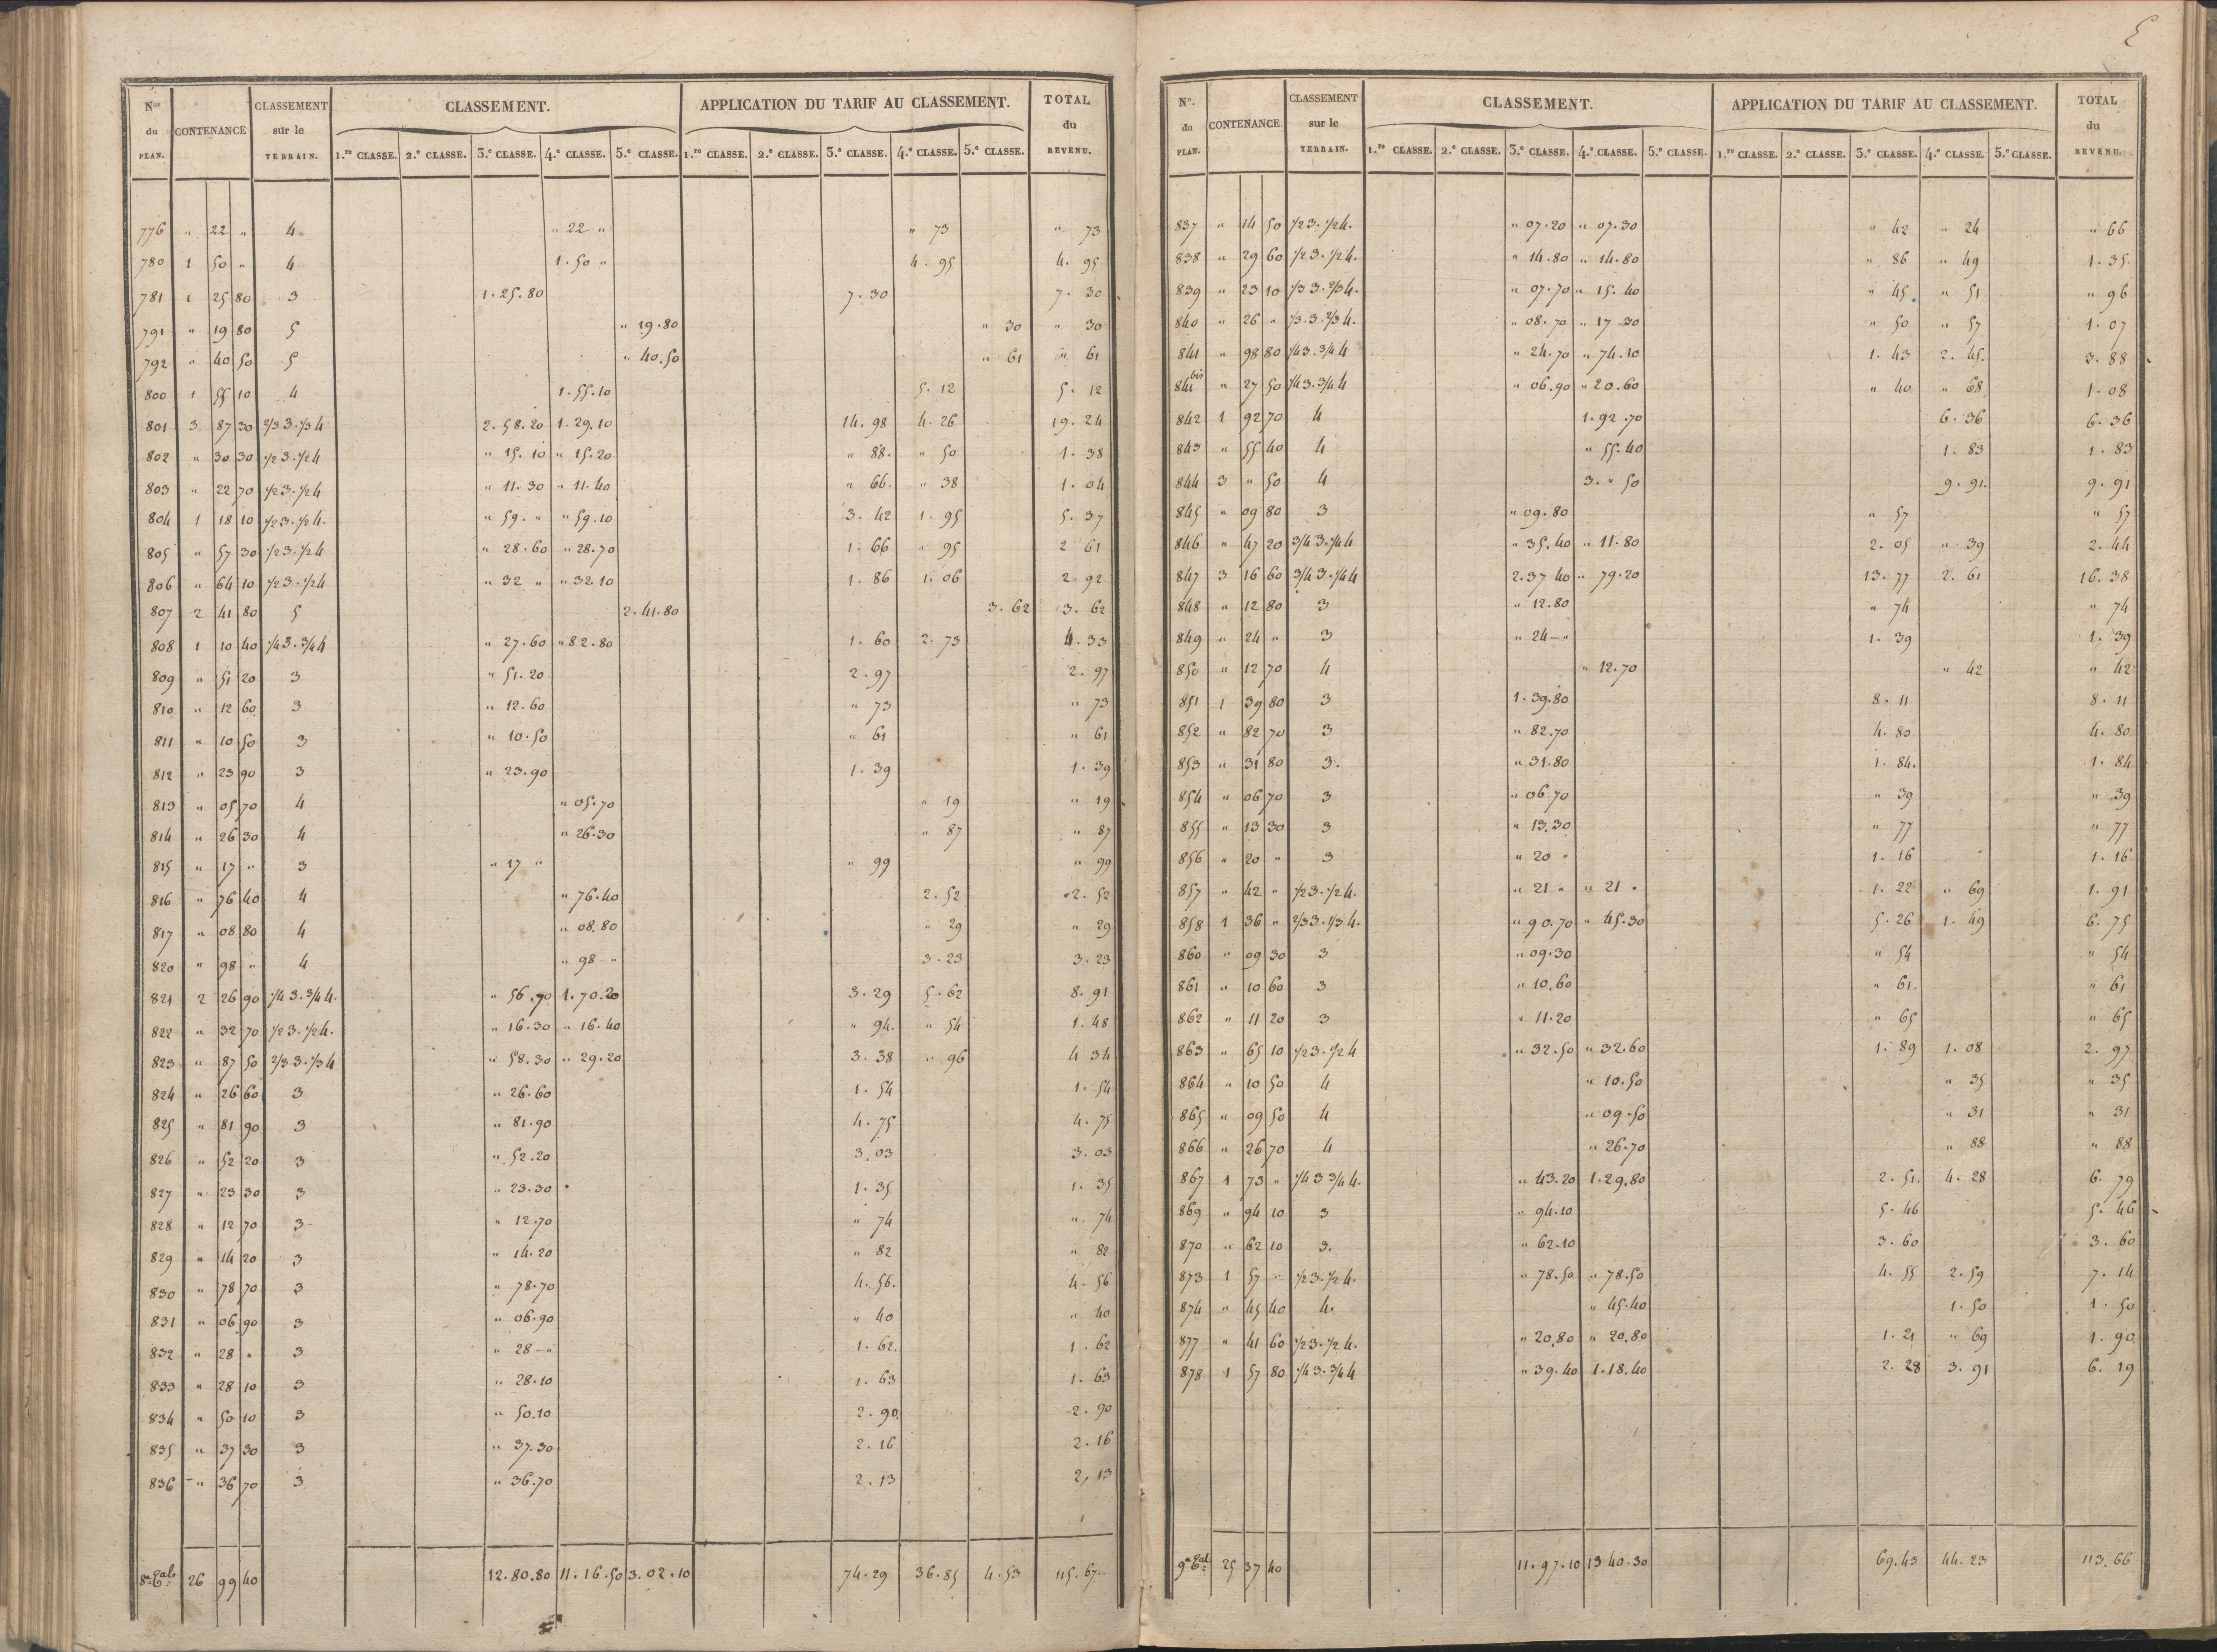 Nos du PLAN. CONTENANCE CLASSEMENT sur le TERRAIN. CLASSEMENT. APPLICATION DU TARIF AU CLASSEMENT. TOTAL du REVENU.
1.re CLASSE. 2.e CLASSE. 3.e CLASSE. 4.e CLASSE. 5.e CLASSE. 1.re CLASSE. 2.e CLASSE. 3.e CLASSE. 4.e CLASSE. 5.e CLASSE.
776 " 22 " 4 " 22 " " 73 " 73
780 1 50 " 4 1.50 " 4.95 4.95
781 1 25 80 3 1.25.80 7.30 7.30
791 " 19 80 5 " 19.80 " 30 " 30
792 " 40 50 5 " 40.50 " 61 " 61
800 1 55 10 4 1.55.10 5.12 5.12
801 3 87 30 2/3 3.1/3 4 2.58.20 1.29.10 14.98 4.26 19.24
802 " 30 30 1/2 3.1/2 4 " 15.10 " 15.20 " 88. " 50 1.38
803 " 22 70 1/2 3.1/2 4 " 11.30 " 11.40 " 66. " 38 1.04
804 1 18 10 1/2 3.1/2 4. " 59. " " 59.10 3.42 1.95 5.37
805 " 57 30 1/2 3.1/2 4 " 28.60 " 28.70 1.66 " 95 2 61
806 " 64 10 1/2 3.1/2 4 " 32 " " 32.10 1.86 1.06 2.92
807 2 41 80 5 2.41.80 3.62 3.62
808 1 10 40 1/4 3.3/4 4 " 27.60 " 82.80 1.60 2.73 4.33
809 " 51 20 3 " 51.20 2.97 2.97
810 " 12 60 3 " 12.60 " 73 " 73
811 " 10 50 3 " 10.50 " 61 " 61
812 " 23 90 3 " 23.90 1.39 1.39
813 " 05 70 4 " 05.70 " 19 " 19
814 " 26 30 4 " 26.30 " 87 " 87
815 " 17 " 3 " 17 " " 99 " 99
816 " 76 40 4 " 76.40 2.52 2.52
817 " 08 80 4 " 08.80 " 29 " 29
820 " 98 " 4 " 98 - " 3.23 3.23
821 2 26 90 1/4 3.3/4 4. " 56.70 1.70.20 3.29 5.62 8.91
822 " 32 70 1/2 3.1/2 4. " 16.30 " 16.40 " 94. " 54 1.48
823 " 87 50 2/3 3.1/3 4 " 58.30 " 29.20 3.38 " 96 4 34
824 " 26 60 3 " 26.60 1.54 1.54
825 " 81 90 3 " 81.90 4.75 4.75
826 " 52 20 3 " 52.20 3.03 3.03
827 " 23 30 3 " 23.30 1.35 1.35
828 " 12 70 3 " 12.70 " 74 " 74
829 " 14 20 3 " 14.20 " 82 " 82
830 " 78 70 3 " 78.70 4.56. 4.56
831 " 06 90 3 " 06.90 " 40 " 40
832 " 28 " 3 " 28 - " 1.62. 1.62
833 " 28 10 3 " 28.10 1.63 1.63
834 " 50 10 3 " 50.10 2.90. 2.90
835 " 37 30 3 " 37.30 2.16 2.16
836 - " 36 70 3 " 36.70 2.13 2,13
26 99 40 12.80.80 11.16.50 3.02.10 74.29 36.85 4.53 115.67
No. du PLAN. CONTENANCE CLASSEMENT sur le TERRAIN. CLASSEMENT. APPLICATION DU TARIF AU CLASSEMENT. TOTAL du REVENU.
1.re CLASSE. 2.e CLASSE. 3.e CLASSE. 4.e CLASSE. 5.e CLASSE. 1.re CLASSE. 2.e CLASSE. 3.e CLASSE. 4.e CLASSE. 5.e CLASSE.
837 " 14 50 1/2 3.1/2 4. " 07.20 " 07.30 " 42 " 24 " 66
838 " 29 60 1/2 3.1/2 4. " 14.80 " 14.80 " 86 " 49 1.35
839 " 23 10 1/3 3.2/3 4. " 07.70 " 15.40 " 45 " 51 " 96
840 " 26 " 1/3.3.2/3 4. " 08.70 " 17 30 " 50 " 57 1.07
841 " 98 80 1/4 3.3/4 4 " 24.70 " 74.10 1.43 2.45. 3.88
841 bis " 27 50 1/4 3.3/4 4 " 06.90 " 20.60 " 40 " 68 1.08
842 1 92 70 4 1.92.70 6.36 6.36
843 " 55 40 4 " 55.40 1.83 1.83
844 3 " 50 4 3. " 50 9.91. 9.91
845 " 09 80 3 " 09.80 " 57 " 57
846 " 47 20 3/4 3.1/4 4 " 35.40 " 11.80 2.05 " 39 2.44
847 3 16 60 3/4 3.1/4 4 2.37 40 " 79.20 13.77 2.61 16.38
848 " 12 80 3 " 12.80 " 74 " 74
849 " 24 " 3 " 24 - " 1.39 1.39
850 " 12 70 4 " 12.70 " 42 " 42
851 1 39 80 3 1.39.80 8.11 8.11
852 " 82 70 3 " 82.70 4.80 4.80
853 " 31 80 3. " 31.80 1.84. 1.84
854 " 06 70 3 " 06 70 " 39 " 39
855 " 13 30 3 " 13.30 " 77 " 77
856 " 20 " 3 " 20 " 1.16 1.16
857 " 42 " 1/2 3.1/2 4. " 21 " " 21 " 1.22 " 69 1.91
858 1 36 " 2/3 3.1/3 4. " 90.70 " 45.30 5.26 1.49 6.75
860 " 09 30 3 " 09.30 " 54 " 54
861 " 10 60 3 " 10.60 " 61. " 61
862 " 11 20 3 " 11.20 " 65 " 65
863 " 65 10 1/2 3.1/2 4 " 32.50 " 32.60 1.89 1.08 2.97
864 " 10 50 4 " 10.50 " 35 " 35
865 " 09 50 4 " 09.50 " 31 " 31
866 " 26 70 4 " 26.70 " 88 " 88
867 1 73 " 1/4 3 3/4 4. " 43.20 1.29.80 2.51. 4.28 6.79
869 " 94 10 3 " 94.10 5.46 5.46
870 " 62 10 3. " 62.10 3.60 3.60
873 1 57 " 1/2 3.1/2 4. " 78.50 " 78.50 4.55 2.59 7.14
874 " 45 40 4. " 45.40 1.50 1.50
877 " 41 60 1/2 3.1/2 4. " 20.80 " 20.80 1.21 " 69 1.90
878 1 57 80 1/4 3.3/4 4 " 39.40 1.18.40 2.28 3.91 6.19
25 37 40 11.97.10 13 40.30 69.43 44.23 113.66